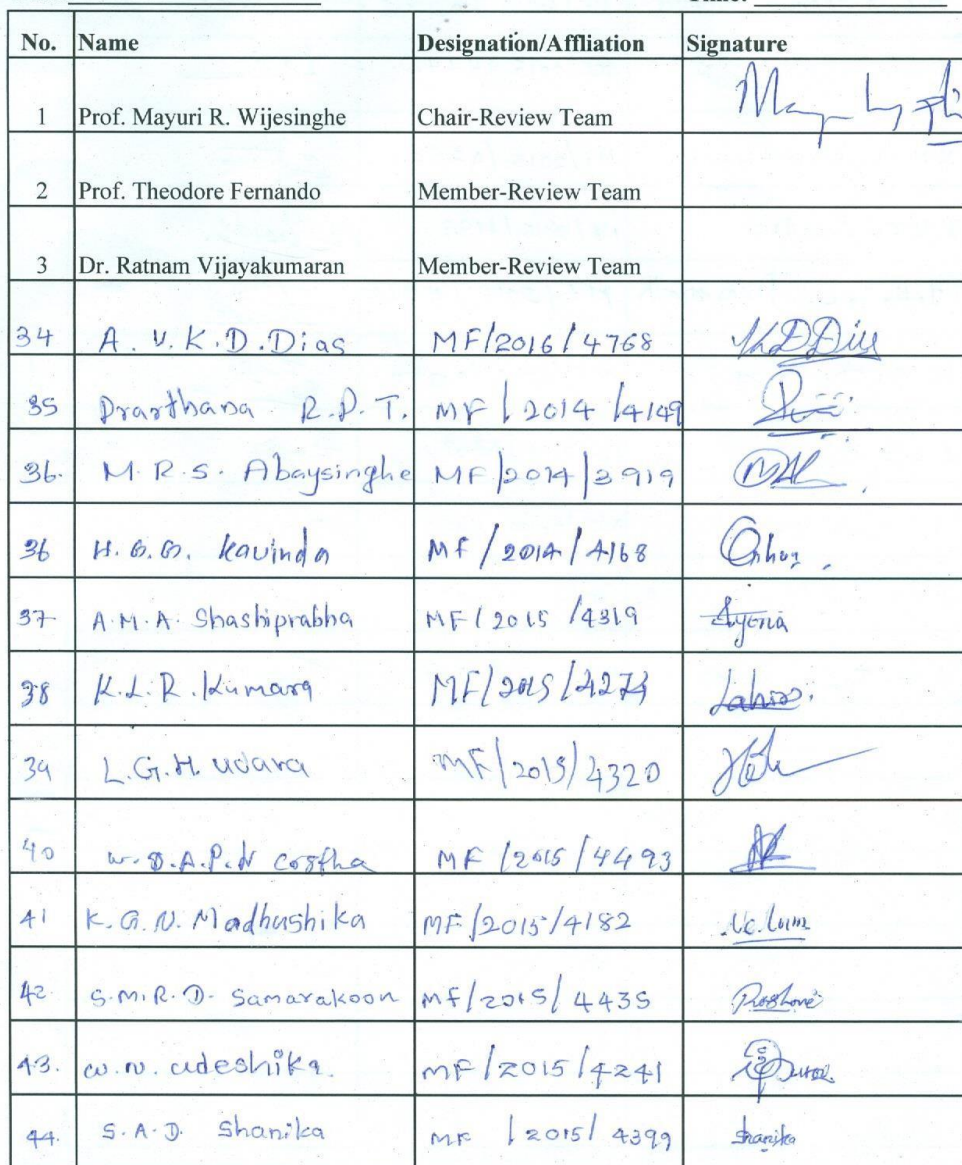 Time:
No. Name Designation/Affliation Signature
1 Prof. Mayuri R. Wijesinghe Chair-Review Team
2 Prof. Theodore Fernando Member-Review Team
3 Dr. Ratnam Vijayakumaran Member-Review Team
34 A. V. K. D. Dias MF/2016/4768
35 Prarthana R.P.T. MF/2014/4149
36. M.R.S. Abaysinghe MF/2014/3919
36 H.G.G. Kavinda MF/2014/4168
37 A.M.A. Shashiprabha MF/2015/4319
38 K.L.R. Kumara MF/2015/4274
39 L.G.H. Udara MF/2015/4320
40 W.S.A.P.N Costha MF/2015/4493
41 K.G.N. Madhushika MF/2015/4182
42. S.M.R.D. Samarakoon MF/2015/4435
43. W.N. Udeshika. MF/2015/4241
44. S.A.D. Shanika MF/2015/4399 Shanika